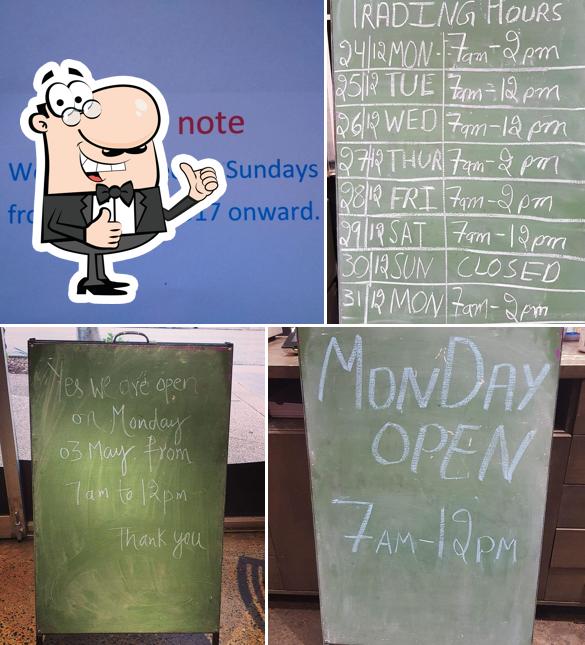 note
Sundays
17 onward.
TRADING HOURS
24/12 MON 7am-2pm
25/12 TUE 7am-12pm
26/12 WED 7am-12pm
27/12 THUR 7am-2pm
28/12 FRI 7am-2pm
29/12 SAT 7am-12pm
30/12 SUN CLOSED
31/12 MON 7am-2pm
Yes we are open
on Monday
03 May from
7am to 12pm
Thank you
MONDAY
OPEN
7AM-12PM